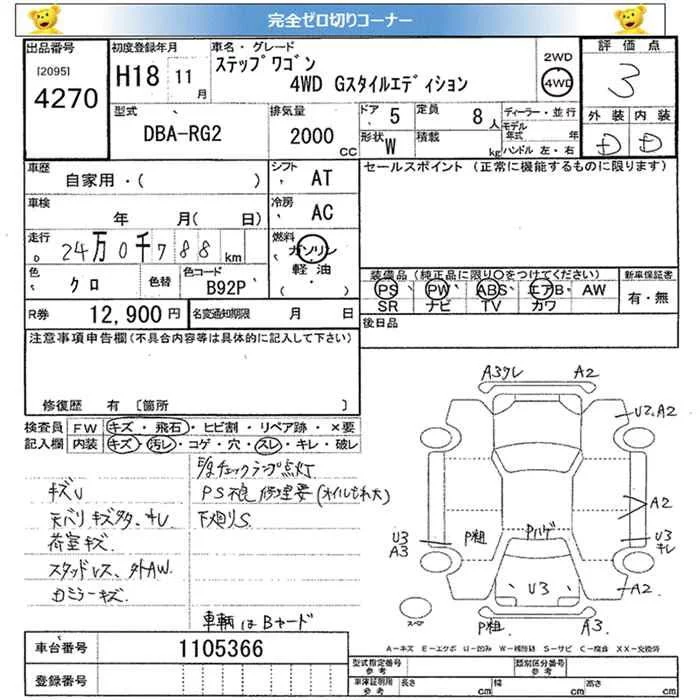 完全ゼロ切りコーナー
出品番号 初度登録年月 車名・グレード 2WD 評価点
[2095] H18 11月 ステップワゴン 4WD 3
4270 4WD Gスタイルエディション
型式 排気量 ドア 5 定員 8人 ディーラー・並行 外装 内装
DBA-RG2 2000CC 形状 W 積載 kg モデル年式 年 D D
ハンドル 左・右
車歴 シフト セールスポイント (正常に機能するものに限ります)
自家用・( ) AT
車検 冷房
年 月( 日) AC
走行 燃料
24万0千788km ガソリン
軽油
(・)
色 色替 色コード 装備品(純正品に限り○をつけてください) 新車保証書
クロ B92P PS PW ABS エアB AW 有・無
SR ナビ TV カワ
R券 12,900円 名変通知期限 月 日 後日品
注意事項申告欄(不具合内容等は具体的に記入して下さい)
修復歴 有 [箇所 ]
検査員 FW キズ・飛石・ヒビ割・リペア跡・×要
記入欄 内装 キズ・汚レ・コゲ・穴・スレ・キレ・破レ
チェックランプ点灯
キズU PS不良 修理要(オイルもれ大)
天バリ キズ 下廻りS
荷室キズ.
スタッドレス、外AW.
ミラーキズ.
車輌はBヤード
A3ワレ A2
U2,A2
A2
U3 A3 P粗 Pハゲ U3 キレ
U3 A2
スペア P粗 A3.
A=キズ E=エクボ U=凹み W=補修跡 S=サビ C=腐食 XX=交換済
車台番号 1105366 型式指定番号 参考 類別区分番号 参考
登録番号 車庫証明用 参考 長さ cm 幅 cm 高さ cm